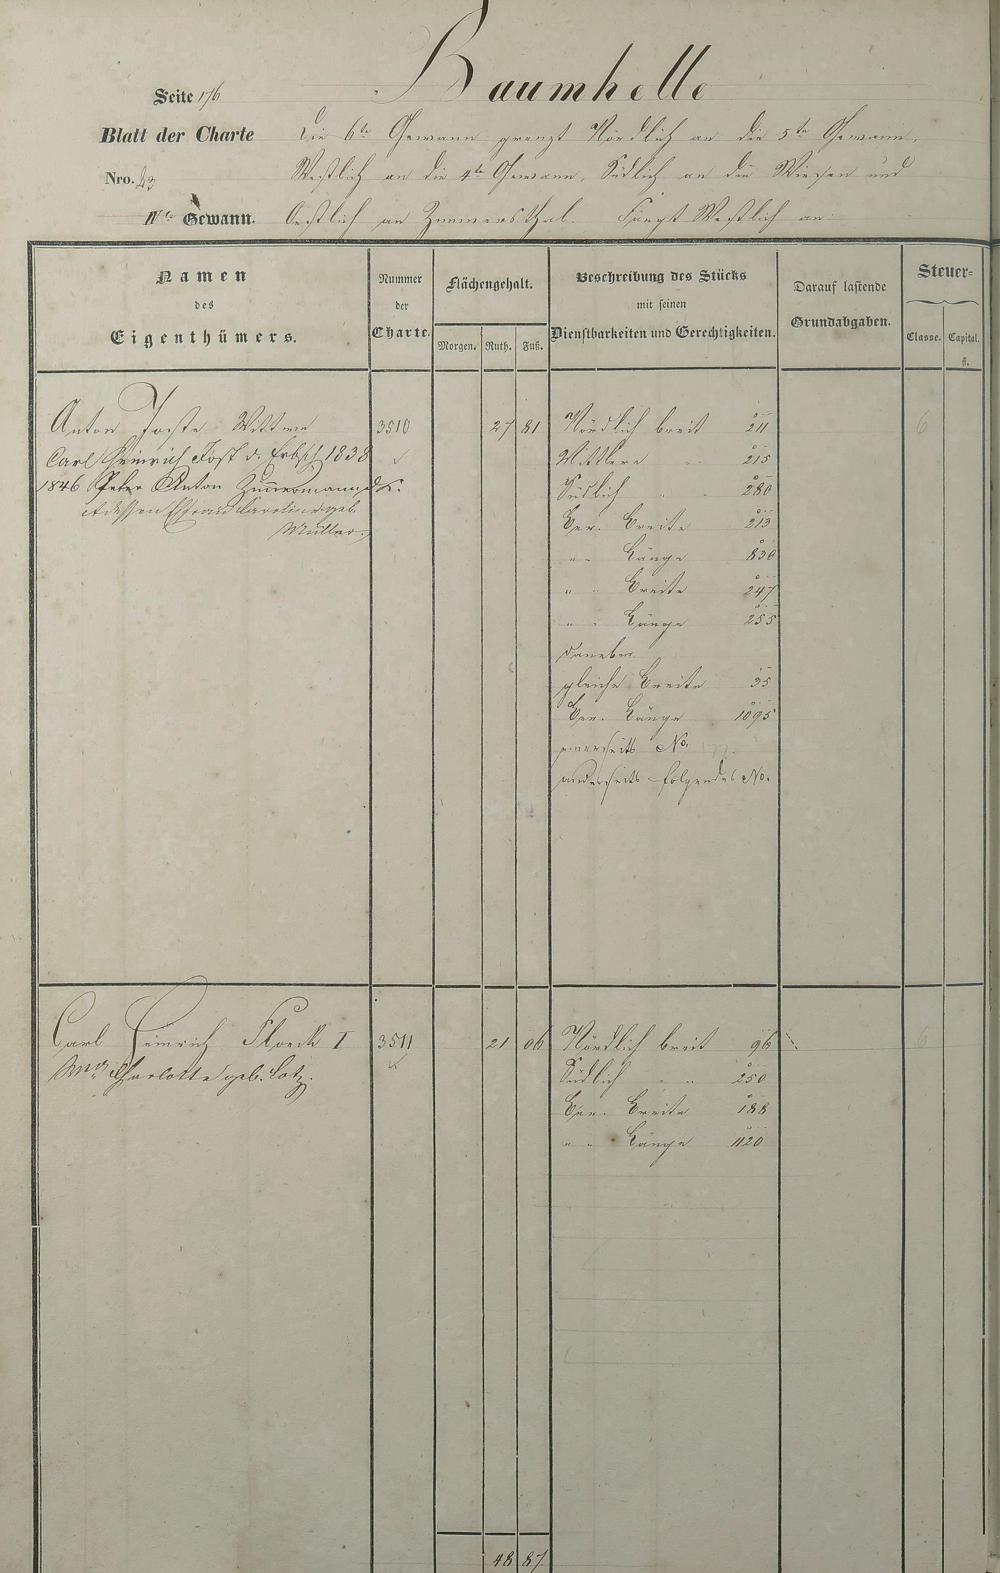 Baumhelle
Seite 176
Blatt der Charte
Nro. 23
IVte Gewann.
Die 6te Gewann grenzt Nördlich an die 5te Gewann,
Westlich an die 4te Gewann, Südlich an die Wiesen und
Oestlich an Zimmersthal. Fängt Westlich an:
Namen
des
Eigenthümers.
Nummer
der
Charte.
Flächengehalt.
Morgen. Ruth. Fuß.
Beschreibung des Stücks
mit seinen
Dienstbarkeiten und Gerechtigkeiten.
Darauf lastende
Grundabgaben.
Steuer-
Classe. Capital.
fl.
Anton Jost Wittwe 3510 27 81 Nördlich breit 211 6
Carl Heinrich Jost d. Erbsch 1838 Mittlere " " 215
1846 Peter Anton Zimmermann Südlich " " 280
dessen Ehefrau Caroline geb. Ger. Breite 213
Müller. " " Länge 830
" " Breite 247
" " Länge 255
daneben
gleiche Breite 35
Ger. Länge 1095
einerseits No.
anderseits folgendes No.
Carl Heinrich Floeck I 3511 21 06 Nördlich breit 96 6
Charlotte geb. Lotz. Südlich " " 250
Ger. Breite 188
" " Länge 1120
48 87